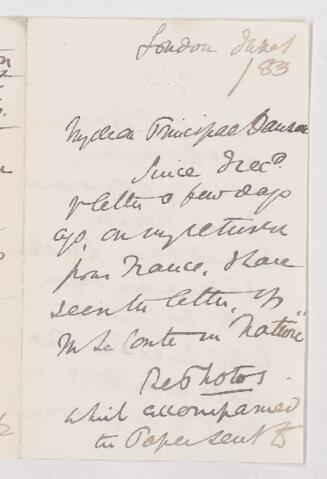 London June 1
/83
My dear Principal Dawson
Since I rec^d.
yr letter a few days
ago, on my return
from France, I have
seen the letter, of
M Le Conte in "Nature"
The Photos.
which accompanied
the Paper sent to